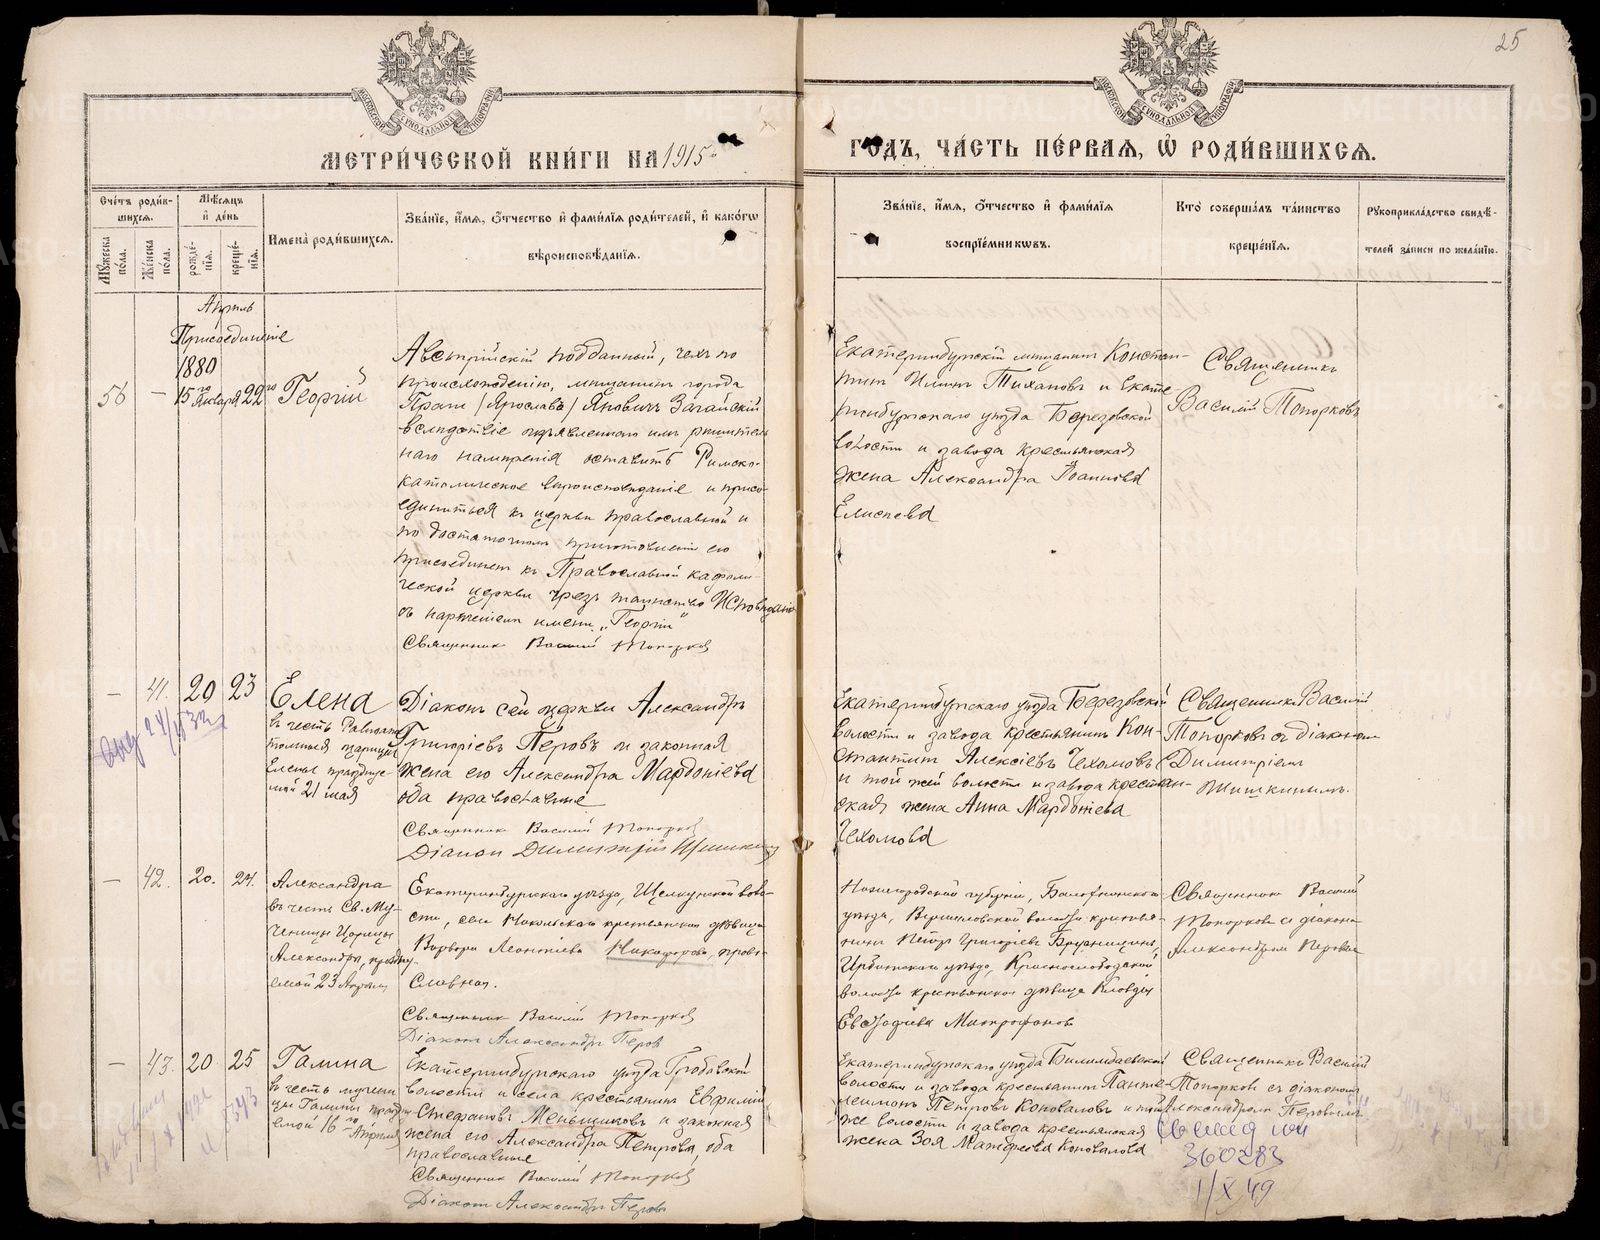 25
МЕТРИ́ЧЕСКОЙ КНИ́ГИ НА 1915
ГОДЪ, ЧА́СТЬ ПЕ́РВАѦ, Ѽ РОДИ́ВШИХСѦ.
Сче́тъ роди́в-
шихсѧ.
Мꙋ́жеска по́ла.
Же́нска по́ла.
Мѣ́сѧцъ
и҆ де́нь
рожде́-
нїѧ.
креще́-
нїѧ.
И҆мена̀ роди́вшихсѧ.
Зва́нїе, и҆́мѧ, ѻ҆́тчество и҆ фами́лїѧ роди́телей, и҆ како́гѡ
вѣроисповѣ́данїѧ.
Зва́нїе, и҆́мѧ, ѻ҆́тчество и҆ фами́лїѧ
воспрїе́мникѡвъ.
Кто̀ соверша́лъ та́инство
креще́нїѧ.
Рꙋкоприкла́дство свидѣ́-
телей за́писи по жела́нїю.
Апрѣль
Присоединенiе
1880
56 — 15го Января 22го
Георгiй
Австрiйскiй подданный, чехъ по
происхожденiю, мѣщанинъ города
Праги /Ярославъ/ Яновичъ Загайскiй
вслѣдствiе изъявленнаго имъ рѣшитель-
наго намѣренiя оставить Римско-
католическое вѣроисповѣданiе и присо-
единиться къ церкви православной и
по достаточномъ приготовленiи его
присоединенъ къ Православной каѳоли-
ческой церкви чрезъ таинство Исповѣданiя
съ нареченiемъ имени „Георгiй“
Священникъ Василiй Топорковъ
Екатеринбургскiй мѣщанинъ Констан-
тинъ Ильинъ Тихановъ и Екате-
ринбургскаго уѣзда Березовской
волости и завода крестьянская
жена Александра Iоаннова
Елисѣева
Священникъ
Василiй Топорковъ
— 41. 20 23
Елена
въ честь Равноапо-
стольныя царицы
Елены празднуе-
мой 21 мая
Дiаконъ сей церкви Александръ
Григорiевъ Перовъ и законная
жена его Александра Мардонiева
оба православные
Священникъ Василiй Топорковъ
Дiаконъ Димитрiй Шишкинъ
Екатеринбургскаго уѣзда Березовской
волости и завода крестьянинъ Кон-
стантинъ Алексiевъ Чехомовъ
и той же волости и завода крестьян-
ская жена Анна Мардонiева
Чехомова
Священникъ Василiй
Топорковъ съ дiакономъ
Димитрiемъ
Шишкинымъ.
— 42. 20. 24.
Александра
въ честь Св. Му-
ченицы Царицы
Александры, праздну-
емой 23 Апрѣля
Екатеринбургскаго уѣзда, Щелкунской воло-
сти, села Никольскаго крестьянская дѣвица
Варвара Леонтiева Никифорова, право-
славная.
Священникъ Василiй Топорковъ
Дiаконъ Александръ Перовъ
Нижегородской губернiи, Балахнинскаго
уѣзда, Вершиловской волости крестья-
нинъ Петръ Григорiевъ
Ирбитскаго уѣзда, Краснослободской
волости крестьянская дѣвица Клавдiя
Митрофанова
Священникъ Василiй
Топорковъ съ дiакономъ
Александромъ Перовымъ
— 43. 20 25
Галина
въ честь мучени-
цы Галины праздну-
емой 16го Апрѣля
Екатеринбургскаго уѣзда Гробовской
волости и села крестьянинъ Евфимiй
Стефановъ Меньшиковъ и законная
жена его Александра Петрова, оба
православные
Священникъ Василiй Топорковъ
Дiаконъ Александръ Перовъ
Екатеринбургскаго уѣзда Билимбаевской
волости и завода крестьянинъ Панте-
леимонъ Петровъ Коноваловъ и той
же волости и завода крестьянская
жена Зоя Матѳеева Коновалова
Священникъ Василiй
Топорковъ съ дiакономъ
Александромъ Перовымъ
360283
1/X 49